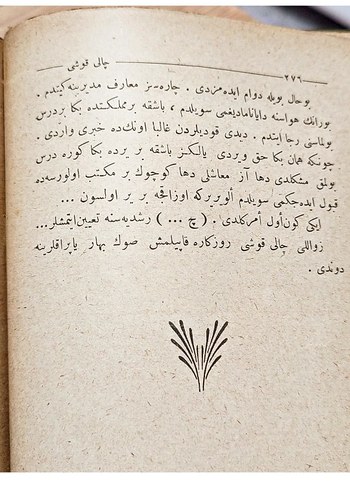 ٢٧٦ چالی قوشی
بوحال بویله دوام ایده‌مزدی . چاره‌سز معارف مدیرینه کیتدم .
بورانك هواسنه دایاناماديغمی سویلدم ، باشقه بر مملكتده بكا بر درس
بولماسنی رجا ایتدم . دیدی قودیلردن غالبا اونك‌ده خبری واردی .
چونكه همان بكا حق ویردی . یالكز باشقه بر یرده بكا كوره درس
بولمق مشكلدی دها آز معاشلی دها كوچوك بر مكتب اولورسه‌ده
قبول ایده‌جكمی سویلدم ألویریركه اوزاقجه بر یر اولسون ...
ایكی كون أول أمركلدی . ( چ ... ) رشدیه‌سنه تعیین ایتمشلر...
زواللی چالی قوشی روزكاره قاپیلمش صوك بهار یاپراقلرینه
دوندی .